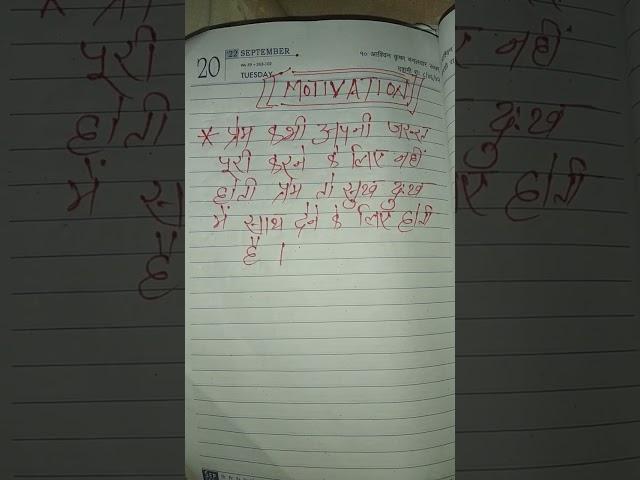 20
22 SEPTEMBER
TUESDAY
MOTIVATION
* प्रेम कभी अपनी जरूरत
पूरी करने के लिए नहीं
होती प्रेम तो सुख दुःख
में साथ देने के लिए होती
है ।